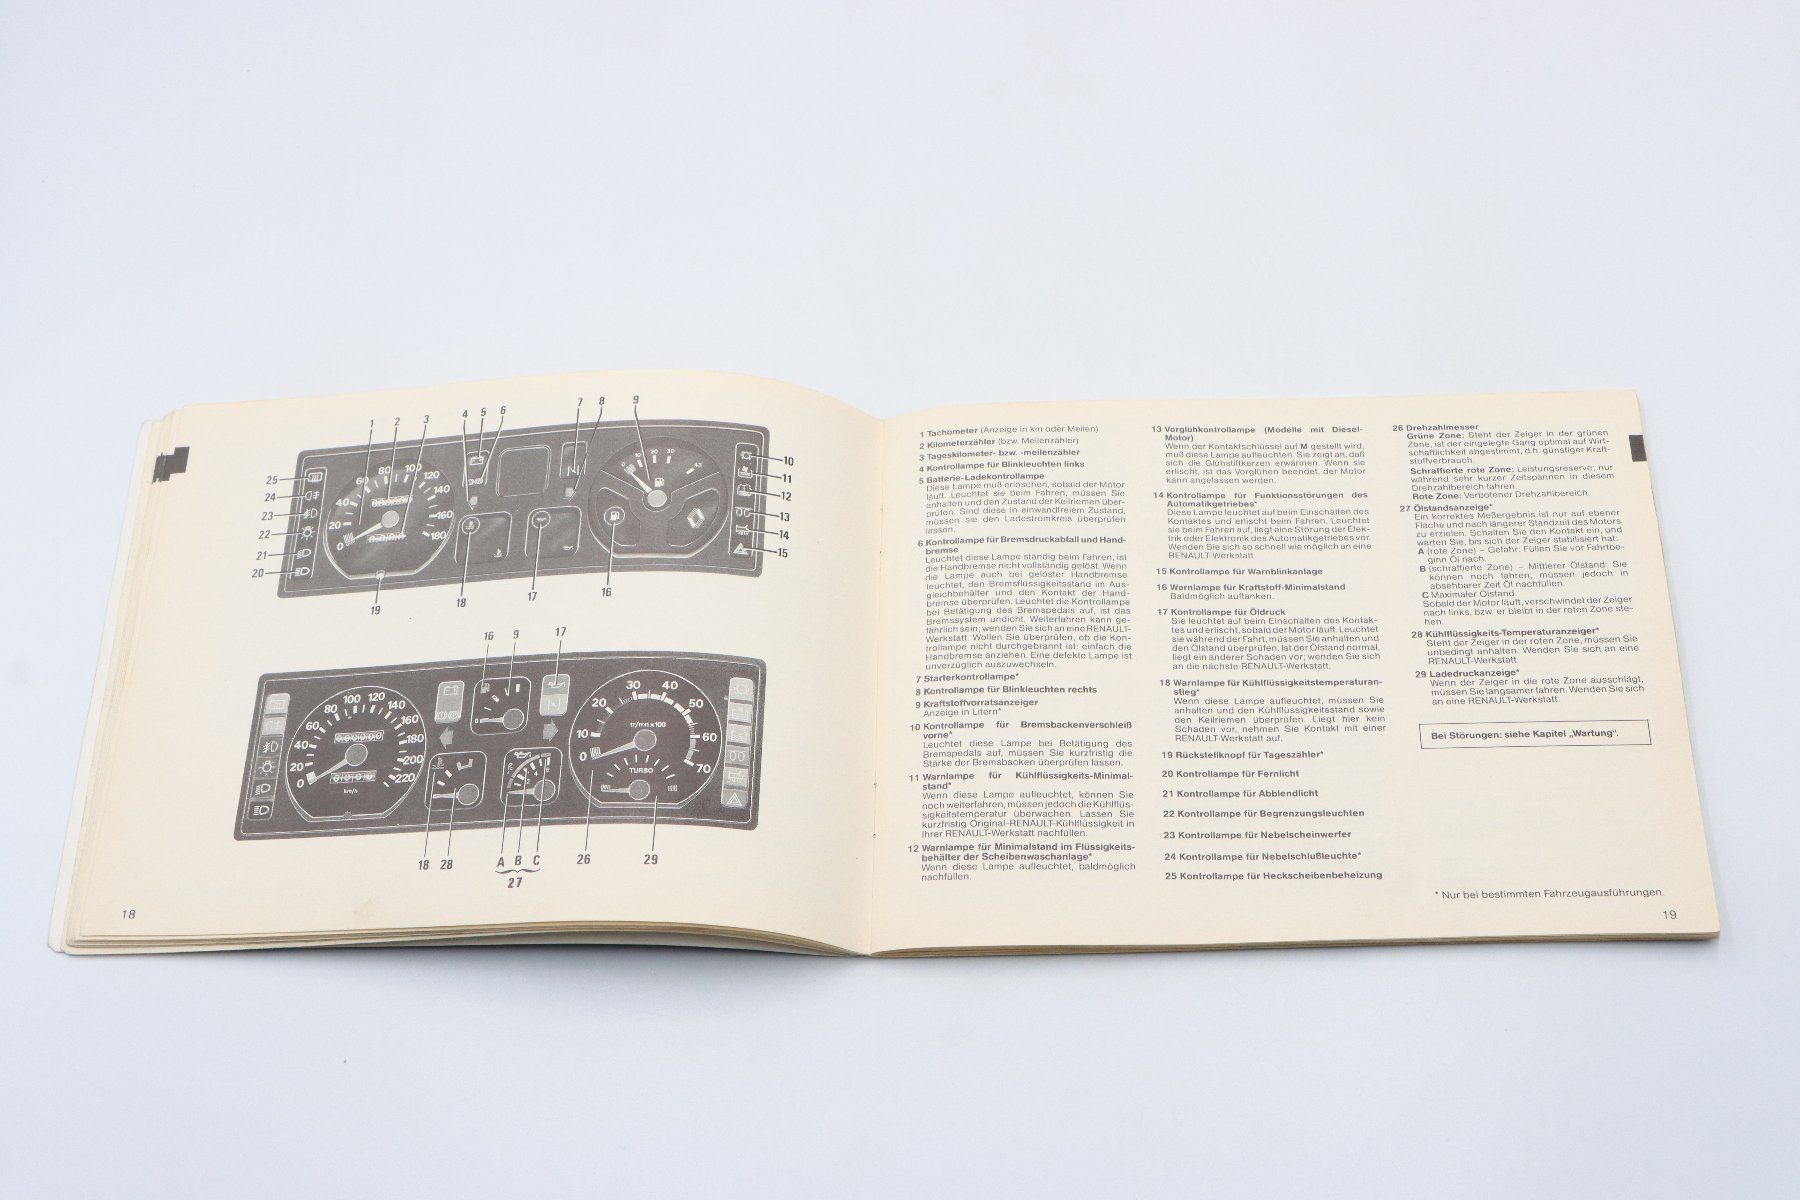 1 2 3 4 5 6 7 8 9
25
24
23
22
21
20
10
11
12
13
14
15
0 20 40 60 80 100 120 140 160 180
0 10 20 30 43
19 18 17 16
16 9 17
0 20 40 60 80 100 120 140 160 180 200 220
km/h
0 10 20 30 40 50 60 70
tr/mn x 100
TURBO
18 28 A B C 26 29
27
18
1 Tachometer (Anzeige in km oder Meilen)
2 Kilometerzähler (bzw. Meilenzähler)
3 Tageskilometer- bzw. -meilenzähler
4 Kontrollampe für Blinkleuchten links
5 Batterie-Ladekontrollampe
Diese Lampe muß erlöschen, sobald der Motor
läuft. Leuchtet sie beim Fahren, müssen Sie
anhalten und den Zustand der Keilriemen über-
prüfen. Sind diese in einwandfreiem Zustand,
müssen sie den Ladestromkreis überprüfen
lassen.
6 Kontrollampe für Bremsdruckabfall und Hand-
bremse
Leuchtet diese Lampe ständig beim Fahren, ist
die Handbremse nicht vollständig gelöst. Wenn
die Lampe auch bei gelöster Handbremse
leuchtet, den Bremsflüssigkeitsstand im Aus-
gleichbehälter und den Kontakt der Hand-
bremse überprüfen. Leuchtet die Kontrollampe
bei Betätigung des Bremspedals auf, ist das
Bremssystem undicht. Weiterfahren kann ge-
fährlich sein; wenden Sie sich an eine RENAULT-
Werkstatt. Wollen Sie überprüfen, ob die Kon-
trollampe nicht durchgebrannt ist: einfach die
Handbremse anziehen. Eine defekte Lampe ist
unverzüglich auszuwechseln.
7 Starterkontrollampe*
8 Kontrollampe für Blinkleuchten rechts
9 Kraftstoffvorratsanzeiger
Anzeige in Litern*
10 Kontrollampe für Bremsbackenverschleiß
vorne*
Leuchtet diese Lampe bei Betätigung des
Bremspedals auf, müssen Sie kurzfristig die
Stärke der Bremsbacken überprüfen lassen.
11 Warnlampe für Kühlflüssigkeits-Minimal-
stand*
Wenn diese Lampe aufleuchtet, können Sie
noch weiterfahren, müssen jedoch die Kühlflüs-
sigkeitstemperatur überwachen. Lassen Sie
kurzfristig Original-RENAULT-Kühlflüssigkeit in
Ihrer RENAULT-Werkstatt nachfüllen.
12 Warnlampe für Minimalstand im Flüssigkeits-
behälter der Scheibenwaschanlage*
Wenn diese Lampe aufleuchtet, baldmöglich
nachfüllen.
13 Vorglühkontrollampe (Modelle mit Diesel-
Motor)
Wenn der Kontaktschlüssel auf M gestellt wird,
muß diese Lampe aufleuchten. Sie zeigt an, daß
sich die Glühstiftkerzen erwärmen. Wenn sie
erlischt, ist das Vorglühen beendet, der Motor
kann angelassen werden.
14 Kontrollampe für Funktionsstörungen des
Automatikgetriebes*
Diese Lampe leuchtet auf beim Einschalten des
Kontaktes und erlischt beim Fahren. Leuchtet
sie beim Fahren auf, liegt eine Störung der Elek-
trik oder Elektronik des Automatikgetriebes vor.
Wenden Sie sich so schnell wie möglich an eine
RENAULT-Werkstatt.
15 Kontrollampe für Warnblinkanlage
16 Warnlampe für Kraftstoff-Minimalstand
Baldmöglich auftanken.
17 Kontrollampe für Öldruck
Sie leuchtet auf beim Einschalten des Kontak-
tes und erlischt, sobald der Motor läuft. Leuchtet
sie während der Fahrt, müssen Sie anhalten und
den Ölstand überprüfen. Ist der Ölstand normal,
liegt ein anderer Schaden vor; wenden Sie sich
an die nächste RENAULT-Werkstatt.
18 Warnlampe für Kühlflüssigkeitstemperaturan-
stieg*
Wenn diese Lampe aufleuchtet, müssen Sie
anhalten und den Kühlflüssigkeitsstand sowie
den Keilriemen überprüfen. Liegt hier kein
Schaden vor, nehmen Sie Kontakt mit einer
RENAULT-Werkstatt auf.
19 Rückstellknopf für Tageszähler*
20 Kontrollampe für Fernlicht
21 Kontrollampe für Abblendlicht
22 Kontrollampe für Begrenzungsleuchten
23 Kontrollampe für Nebelscheinwerfer
24 Kontrollampe für Nebelschlußleuchte*
25 Kontrollampe für Heckscheibenbeheizung
26 Drehzahlmesser
Grüne Zone: Steht der Zeiger in der grünen
Zone, ist der eingelegte Gang optimal auf Wirt-
schaftlichkeit abgestimmt, d.h. günstiger Kraft-
stoffverbrauch.
Schraffierte rote Zone: Leistungsreserve; nur
während sehr kurzer Zeitspannen in diesem
Drehzahlbereich fahren.
Rote Zone: Verbotener Drehzahlbereich.
27 Ölstandsanzeige*
Ein korrektes Meßergebnis ist nur auf ebener
Fläche und nach längerer Standzeit des Motors
zu erzielen. Schalten Sie den Kontakt ein, und
warten Sie, bis sich der Zeiger stabilisiert hat:
A (rote Zone) – Gefahr: Füllen Sie vor Fahrtbe-
ginn Öl nach.
B (schraffierte Zone) – Mittlerer Ölstand: Sie
können noch fahren, müssen jedoch in
absehbarer Zeit Öl nachfüllen.
C Maximaler Ölstand.
Sobald der Motor läuft, verschwindet der Zeiger
nach links, bzw. er bleibt in der roten Zone ste-
hen.
28 Kühlflüssigkeits-Temperaturanzeiger*
Steht der Zeiger in der roten Zone, müssen Sie
unbedingt anhalten. Wenden Sie sich an eine
RENAULT-Werkstatt.
29 Ladedruckanzeige*
Wenn der Zeiger in die rote Zone ausschlägt,
müssen Sie langsamer fahren. Wenden Sie sich
an eine RENAULT-Werkstatt.
Bei Störungen: siehe Kapitel „Wartung“.
* Nur bei bestimmten Fahrzeugausführungen.
19